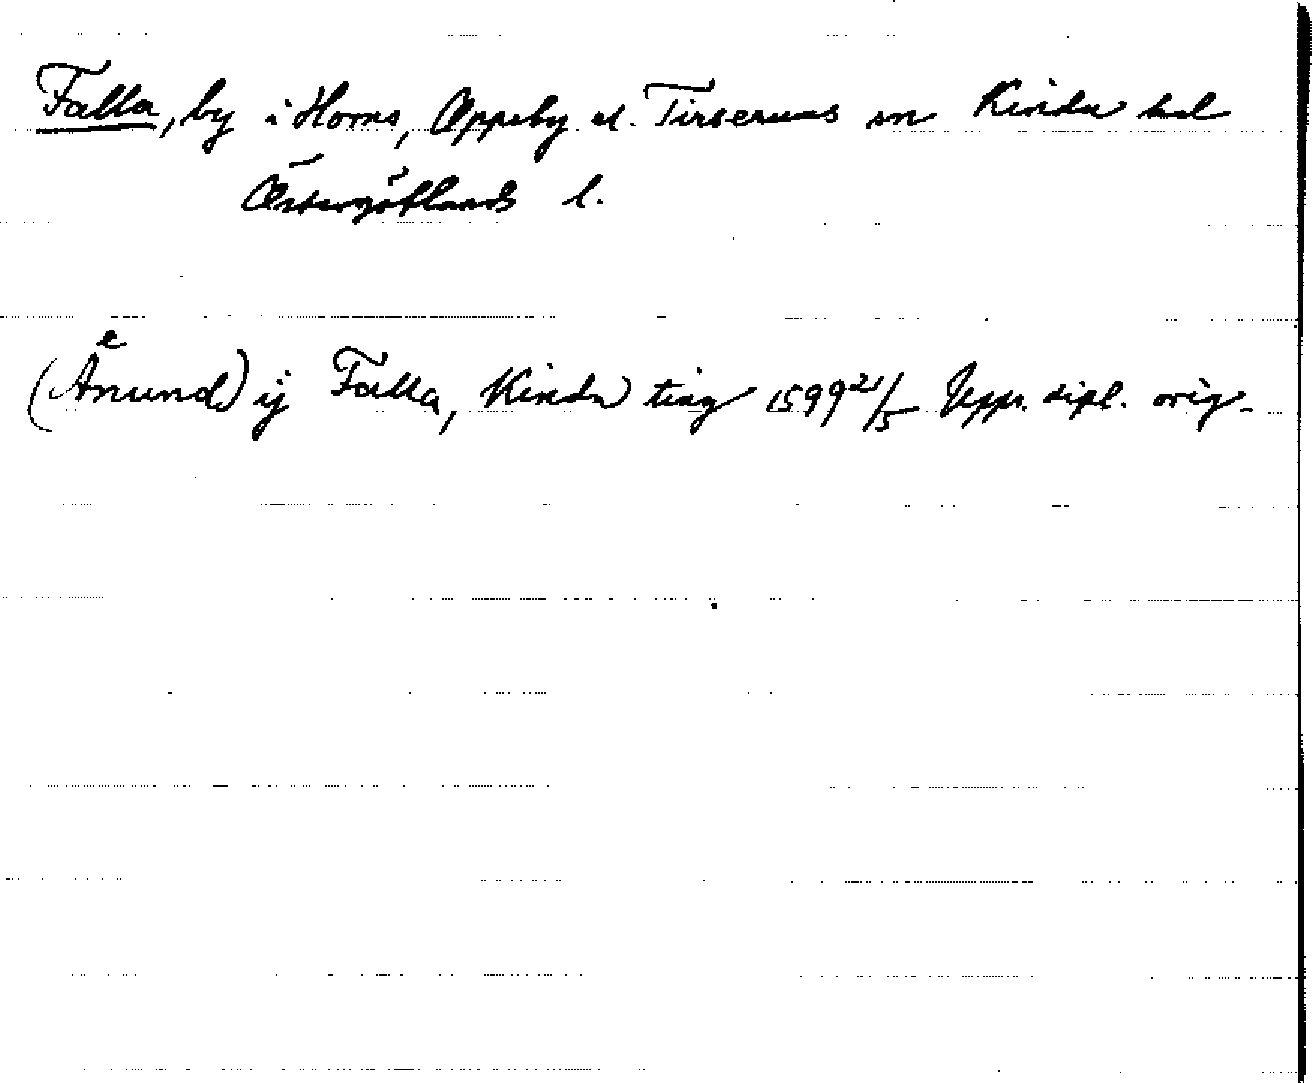 Falla, by i Horns, Oppeby el. Tirserums sn Kinda hd
Östergötlands l.
(Anund) ij Falla, Kinda ting 1599 21/5 Upps. dipl. orig.